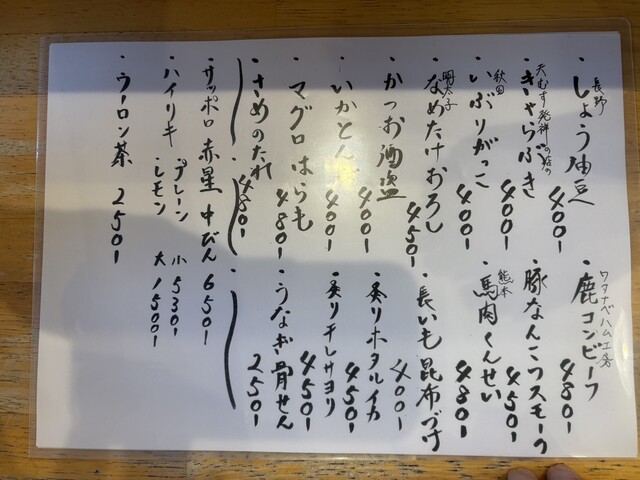 長野
・しょうゆ豆 400-
天むす発祥の店の
・きゃらぶき 400-
秋田
・いぶりがっこ 400-
明太子
・なめたけおろし 450-
・かつお酒盗 400-
・いかとん 400-
・マグロはらも 480-
・さめのたれ 480-
ワタナベハム工房
・鹿コンビーフ 480-
・豚なんこつスモーク 450-
熊本
・馬肉くんせい 480-
・長いも昆布づけ 400-
・炙りホタルイカ 450-
・炙り干しサヨリ 450-
・うなぎ骨せん 250-
・サッポロ赤星 中びん 650-
・ハイリキ プレーン 小 530-
・レモン 大 1500-
・ウーロン茶 250-